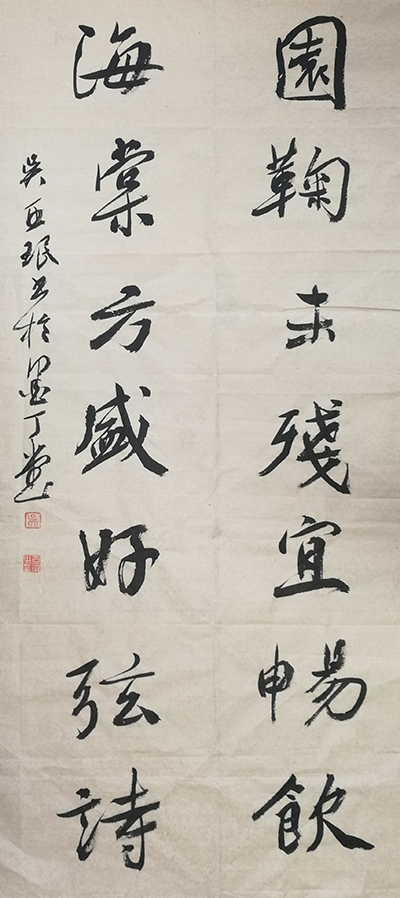 園鞠未殘宜暢飲
海棠方盛好弦詩
吳亞珉書於墨丁堂